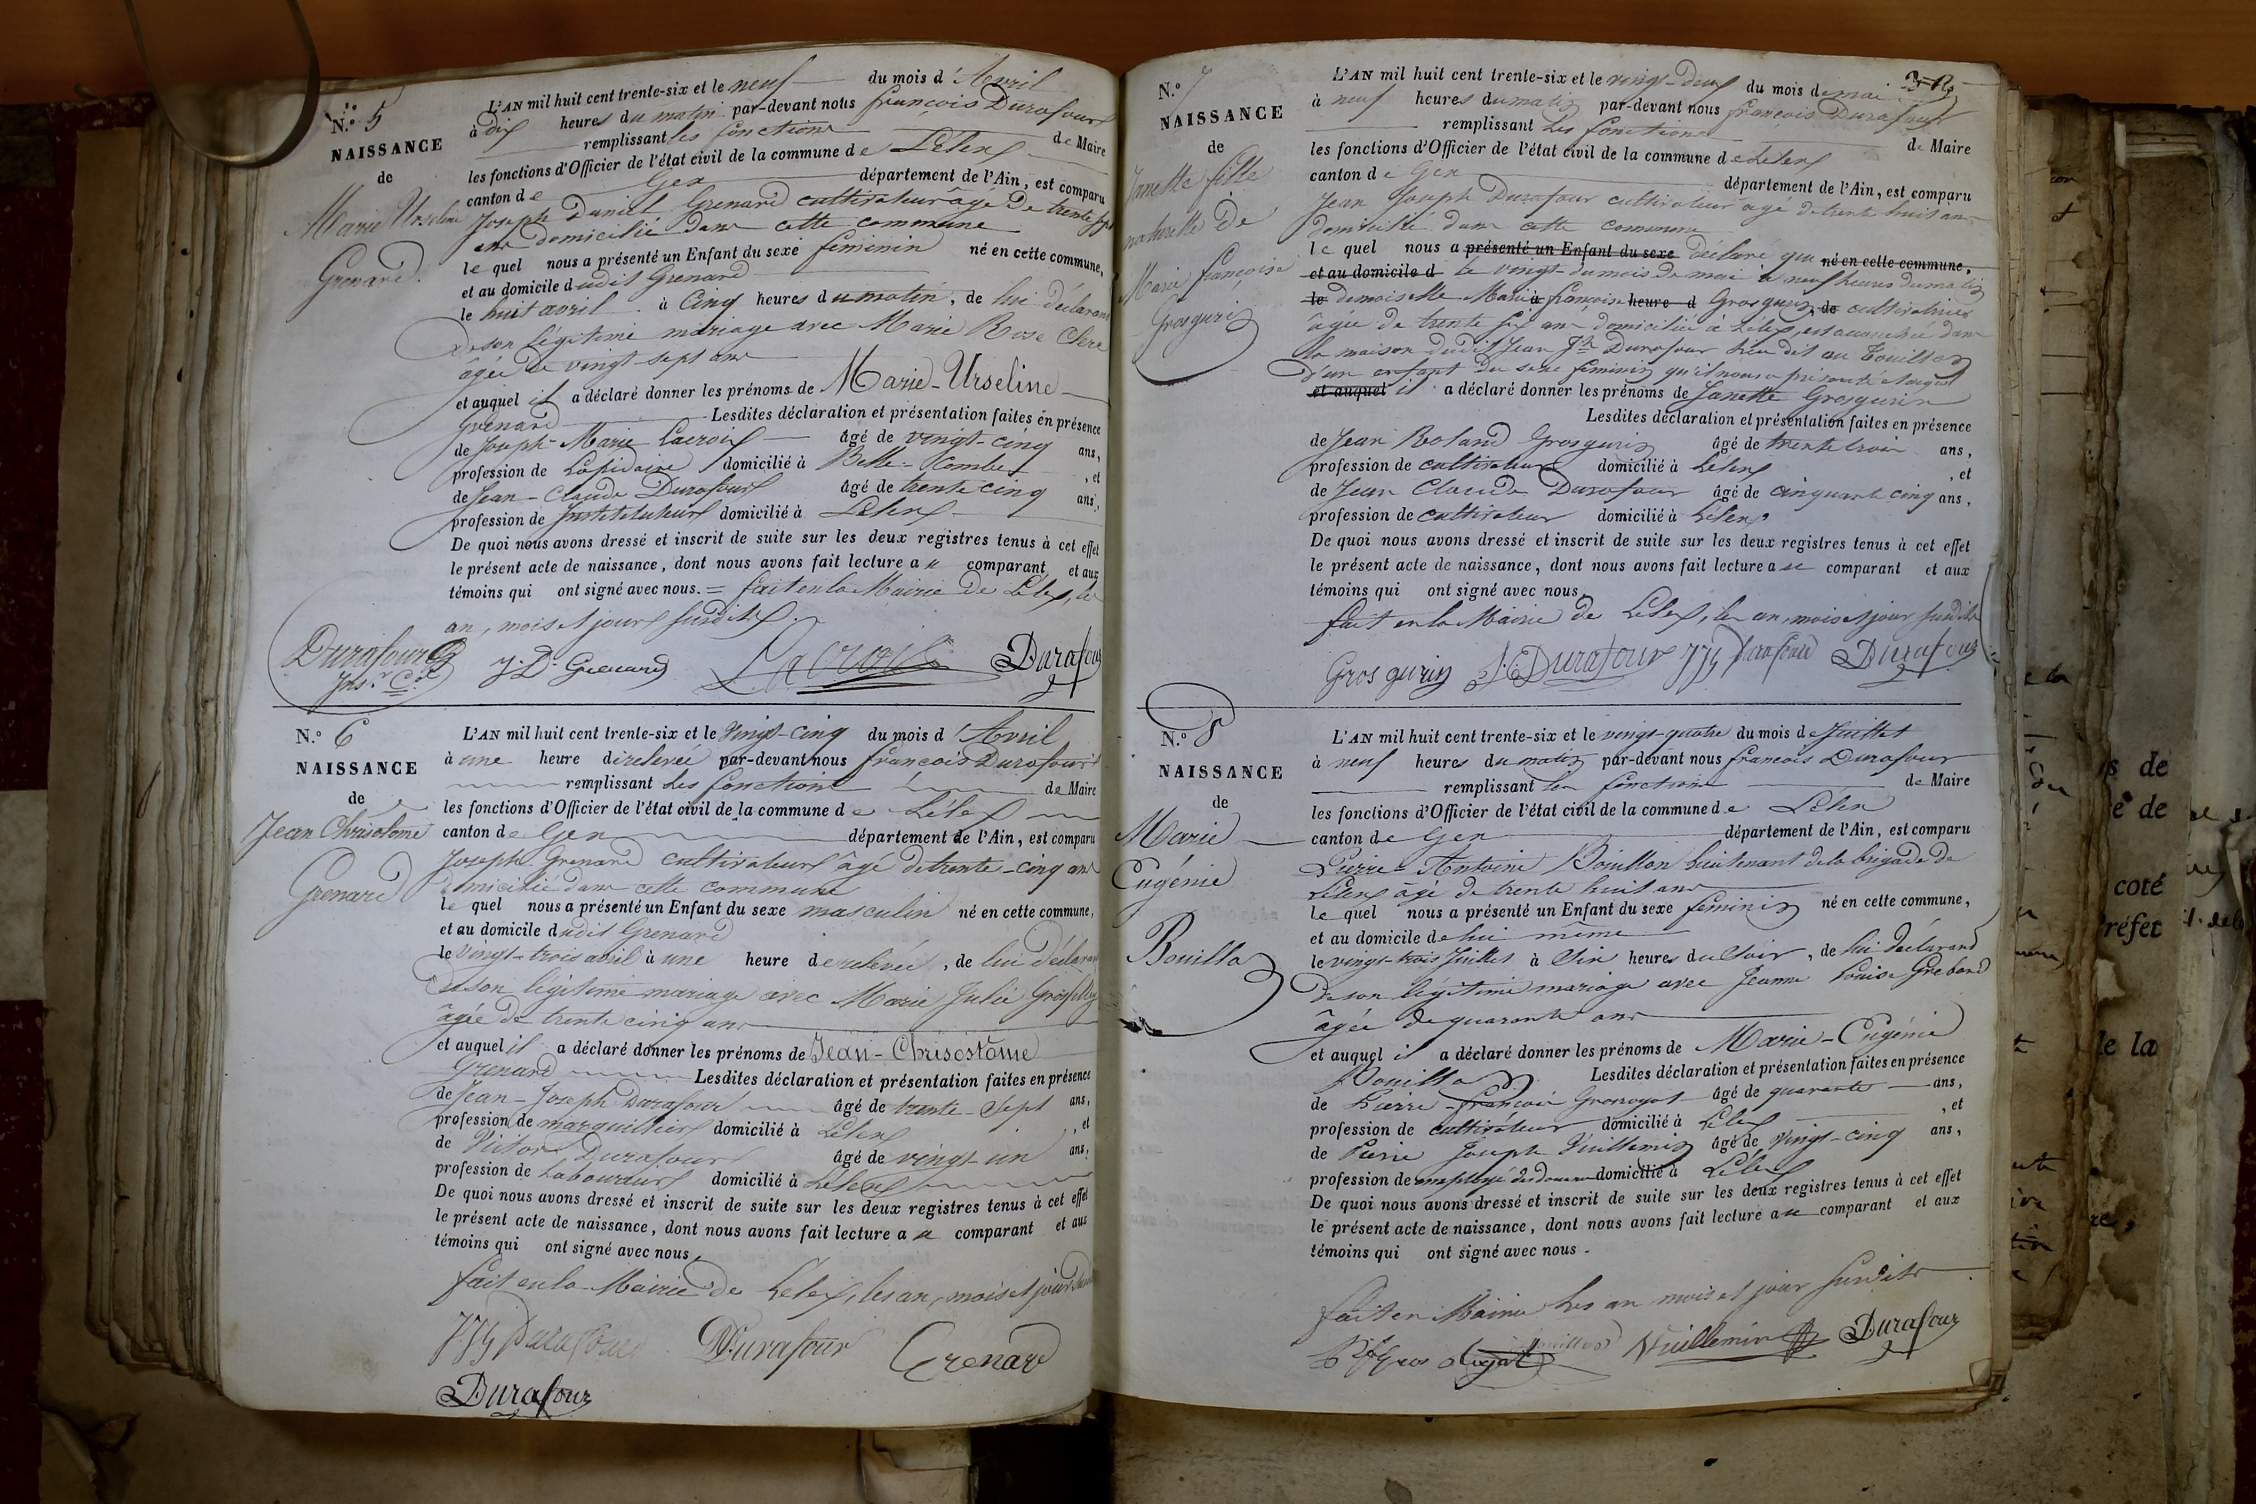 N.° 5
NAISSANCE
de
Marie Urseline
Grenard.
L'AN mil huit cent trente-six et le neuf du mois d'Avril
à dix heures du matin par-devant nous françois Durafour
remplissant les fonctions de Maire
les fonctions d'Officier de l'état civil de la commune de Lélex
canton de Gex département de l'Ain, est comparu
Joseph Daniel Grenard cultivateur âgé de trente
ans domicilié dans cette commune
le quel nous a présenté un Enfant du sexe feminin né en cette commune,
et au domicile dudit Grenard
le huit avril à Cinq heures du matin, de lui déclarant
de son légitime mariage avec Marie Rose
âgée de vingt sept ans
et auquel il a déclaré donner les prénoms de Marie-Urseline
Grenard Lesdites déclaration et présentation faites en présence
de Joseph-Marie Lacroix âgé de vingt-cinq ans,
profession de Lapidaire domicilié à Belle-Combe, et
de Jean-Claude Durafour âgé de trente cinq ans,
profession de Instituteur domicilié à Lelex
De quoi nous avons dressé et inscrit de suite sur les deux registres tenus à cet effet
le présent acte de naissance, dont nous avons fait lecture au comparant et aux
témoins qui ont signé avec nous. = fait en la Mairie de Lélex, les
an, mois et jour susdits.
Durafour J. D. Grenard Lacroix Durafour
N.° 6
NAISSANCE
de
Jean Chrisostome
Grenard
L'AN mil huit cent trente-six et le vingt-cinq du mois d'Avril
à une heure de relevée par-devant nous françois Durafour
remplissant les fonctions de Maire
les fonctions d'Officier de l'état civil de la commune de Lélex
canton de Gex département de l'Ain, est comparu
Joseph Grenard cultivateur âgé de trente-cinq ans
domicilié dans cette commune
le quel nous a présenté un Enfant du sexe masculin né en cette commune,
et au domicile dudit Grenard
le vingt-trois avril à une heure de relevée, de lui déclarant
de son légitime mariage avec Marie Julie
âgée de trente cinq ans
et auquel il a déclaré donner les prénoms de Jean-Chrisostôme
Grenard Lesdites déclaration et présentation faites en présence
de Jean-Joseph Durafour âgé de trente-sept ans,
profession de marguillier domicilié à Lélex, et
de Victor Durafour âgé de vingt-un ans,
profession de Laboureur domicilié à Lélex
De quoi nous avons dressé et inscrit de suite sur les deux registres tenus à cet effet
le présent acte de naissance, dont nous avons fait lecture au comparant et aux
témoins qui ont signé avec nous,
fait en la Mairie de Lélex, les an, mois et jour susdits
JJh Durafour Durafour Grenard
Durafour
N.° 7
NAISSANCE
de
Janette fille
naturelle de
Marie françoise
Grosgurin
L'AN mil huit cent trente-six et le vingt-deux du mois de mai
à neuf heures du matin par-devant nous françois Durafour
remplissant les fonctions de Maire
les fonctions d'Officier de l'état civil de la commune de Lélex
canton de Gex département de l'Ain, est comparu
Jean Joseph Durafour cultivateur âgé de trente huit ans
domicilié dans cette commune
le quel nous a présenté un Enfant du sexe déclaré que né en cette commune,
et au domicile d le vingt du mois de mai à neuf heures du matin
le demoiselle Marie à françoise heure d Grosgurin, de cultivatrice
âgée de trente six ans domiciliée à Lélex, est accouchée dans
la maison dudit Jean Jh Durafour lieu dit au
d'un enfant du sexe feminin qu'il nous a présenté et auquel
et auquel il a déclaré donner les prénoms de Janette Grosgurin
Lesdites déclaration et présentation faites en présence
de Jean Roland Grosgurin âgé de trente trois ans,
profession de cultivateur domicilié à Lélex, et
de Jean Claude Durafour âgé de cinquante cinq ans,
profession de cultivateur domicilié à Lélex
De quoi nous avons dressé et inscrit de suite sur les deux registres tenus à cet effet
le présent acte de naissance, dont nous avons fait lecture au comparant et aux
témoins qui ont signé avec nous,
fait en la Mairie de Lélex, les an, mois et jour susdits
Grosgurin J. C. Durafour JJh Durafour Durafour
N.° 8
NAISSANCE
de
Marie
Eugénie
Bouillon
L'AN mil huit cent trente-six et le vingt-quatre du mois de Juillet
à neuf heures du matin par-devant nous françois Durafour
remplissant les fonctions de Maire
les fonctions d'Officier de l'état civil de la commune de Lélex
canton de Gex département de l'Ain, est comparu
Pierre-Antoine Bouillon Lieutenant de la brigade de
Lélex âgé de trente huit ans
le quel nous a présenté un Enfant du sexe féminin né en cette commune,
et au domicile de lui même
le vingt-trois Juillet à Six heures du Soir, de lui déclarant
de son légitime mariage avec Jeanne Louise
âgée de quarante ans
et auquel il a déclaré donner les prénoms de Marie-Eugénie
Bouillon Lesdites déclaration et présentation faites en présence
de Pierre-françois âgé de quarante ans,
profession de cultivateur domicilié à Lélex, et
de Pierre Joseph Vuillemin âgé de vingt-cinq ans,
profession de employé des douanes domicilié à Lélex
De quoi nous avons dressé et inscrit de suite sur les deux registres tenus à cet effet
le présent acte de naissance, dont nous avons fait lecture au comparant et aux
témoins qui ont signé avec nous.
fait en Mairie les an mois et jour susdits
Vuillemin Durafour
de
e de
coté
réfet
de la